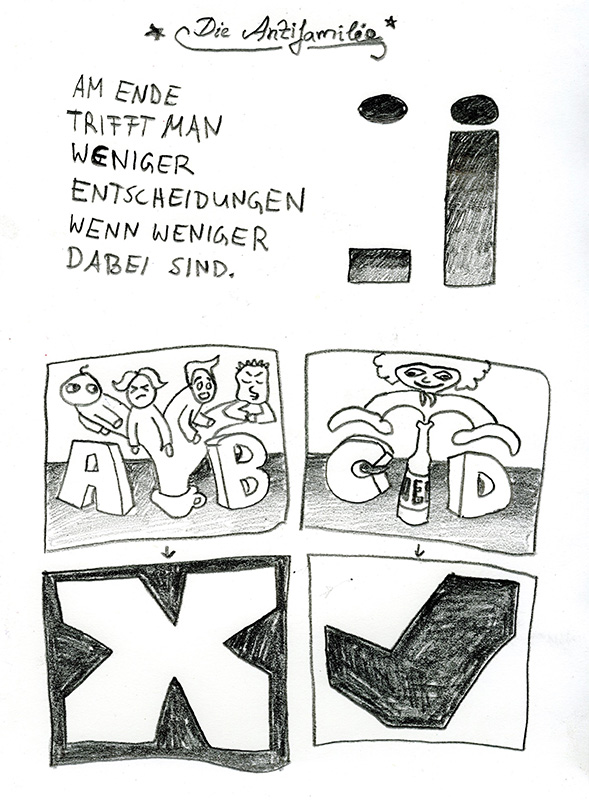 Die Antifamilie
AM ENDE
TRIFFT MAN
WENIGER
ENTSCHEIDUNGEN
WENN WENIGER
DABEI SIND.
A B
C D